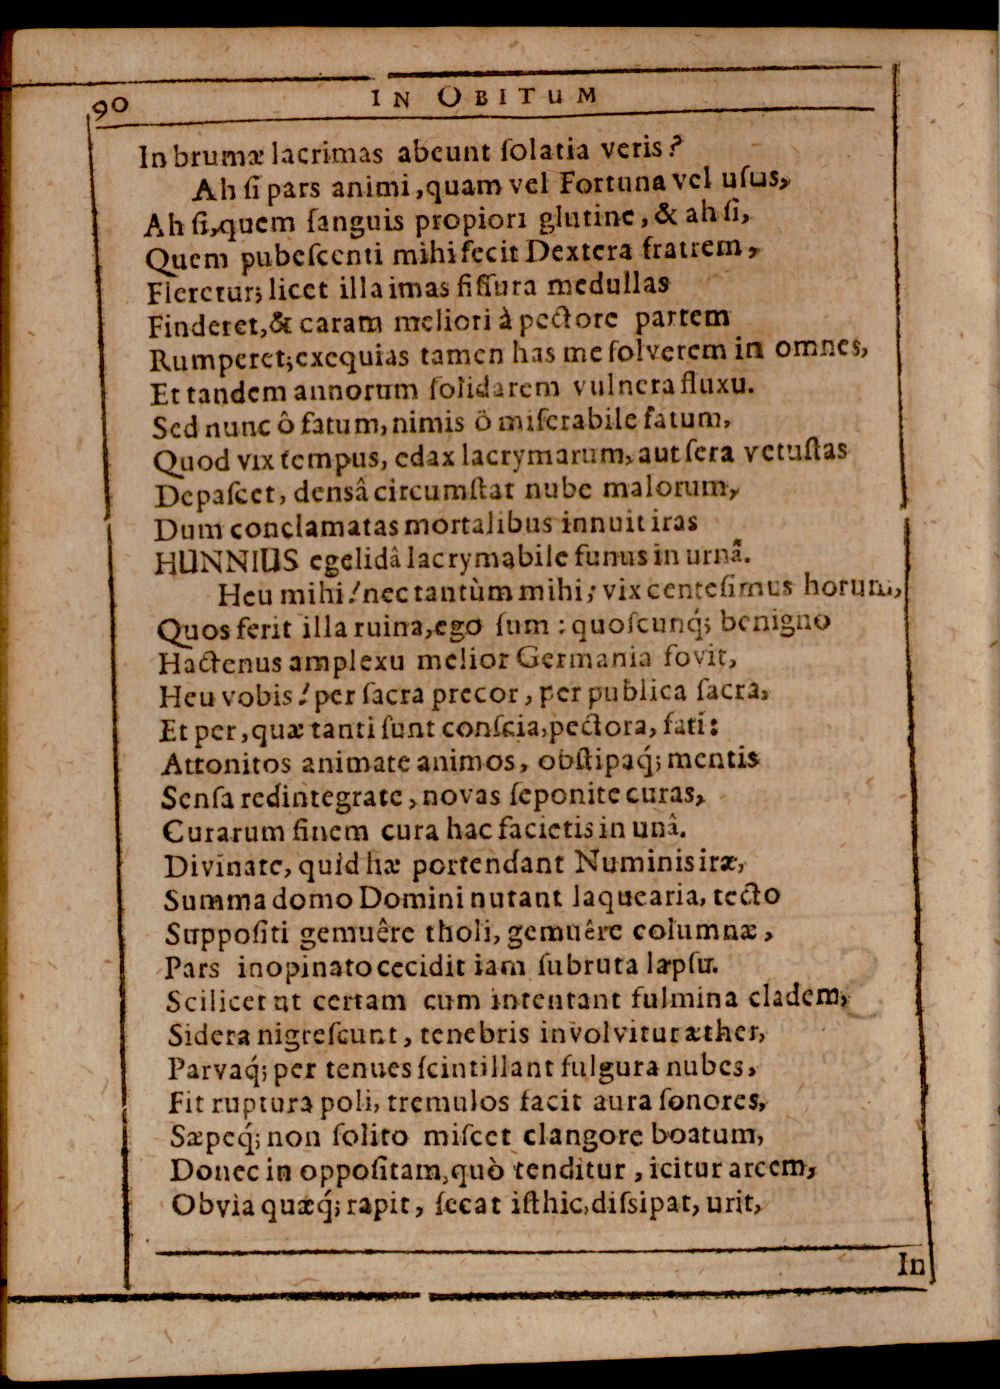 90
IN OBITUM
In brumæ lacrimas abeunt ſolatia veris?
Ah ſi pars animi, quam vel Fortuna vel uſus,
Ah ſi, quem ſanguis propiori glutine, & ah ſi,
Quem pubeſcenti mihi fecit Dextera fratrem,
Fleretur; licet illa imas fiſſura medullas
Finderet, & caram meliori à pectore partem
Rumperet; exequias tamen has me ſolverem in omnes,
Et tandem annorum ſolidarem vulnera fluxu.
Sed nunc ô fatum, nimis ô miſerabile fatum,
Quod vix tempus, edax lacrymarum, aut ſera vetuſtas
Depaſcet, densâ circumſtat nube malorum,
Dum conclamatas mortalibus innuit iras
HUNNIUS egelidâ lacrymabile funus in urnâ.
Heu mihi! nec tantùm mihi; vix centeſimus horum,
Quos ferit illa ruina, ego ſum: quoſcunq́; benigno
Hactenus amplexu melior Germania fovit,
Heu vobis! per ſacra precor, per publica ſacra,
Et per, quæ tanti ſunt conſcia, pectora, fati:
Attonitos animate animos, obſtipaq́; mentis
Senſa redintegrate, novas ſeponite curas,
Curarum finem cura hac facietis in unâ.
Divinate, quid hæ portendant Numinis iræ,
Summa domo Domini nutant laquearia, tecto
Suppoſiti gemuêre tholi, gemuêre columnæ,
Pars inopinato cecidit iam ſubruta lapſu.
Scilicet ut certam cum intentant fulmina cladem,
Sidera nigreſcunt, tenebris involvitur æther,
Parvaq́; per tenues ſcintillant fulgura nubes,
Fit ruptura poli, tremulos facit aura ſonores,
Sæpeq́; non ſolito miſcet clangore boatum,
Donec in oppoſitam, quò tenditur, icitur arcem,
Obvia quæq́; rapit, ſecat iſthic, diſsipat, urit,
In